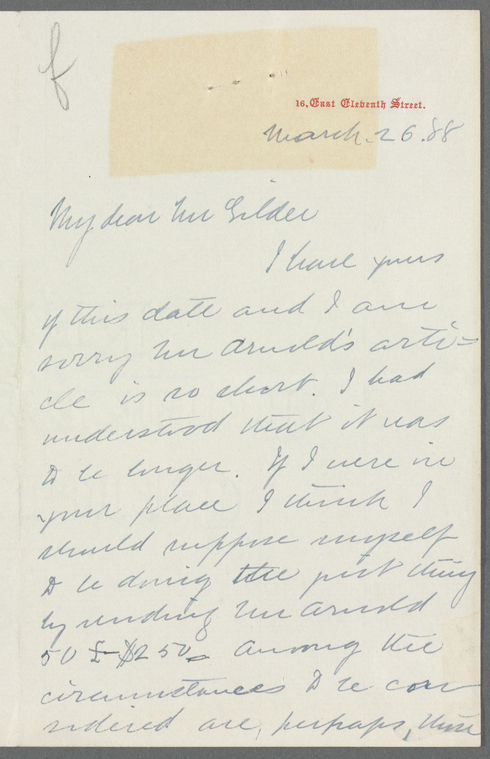 f
16, East Eleventh Street.
March. 26. 88
My dear Mr Gilder
I have yours
of this date and I am
sorry Mr Arnold's arti=
cle is so short. I had
understood that it was
to be longer. If I were in
your place I think I
should suppose myself
to be doing the just thing
by sending Mr Arnold
50 £ - $250. Among the
circumstances to be con
sidered are, perhaps, these